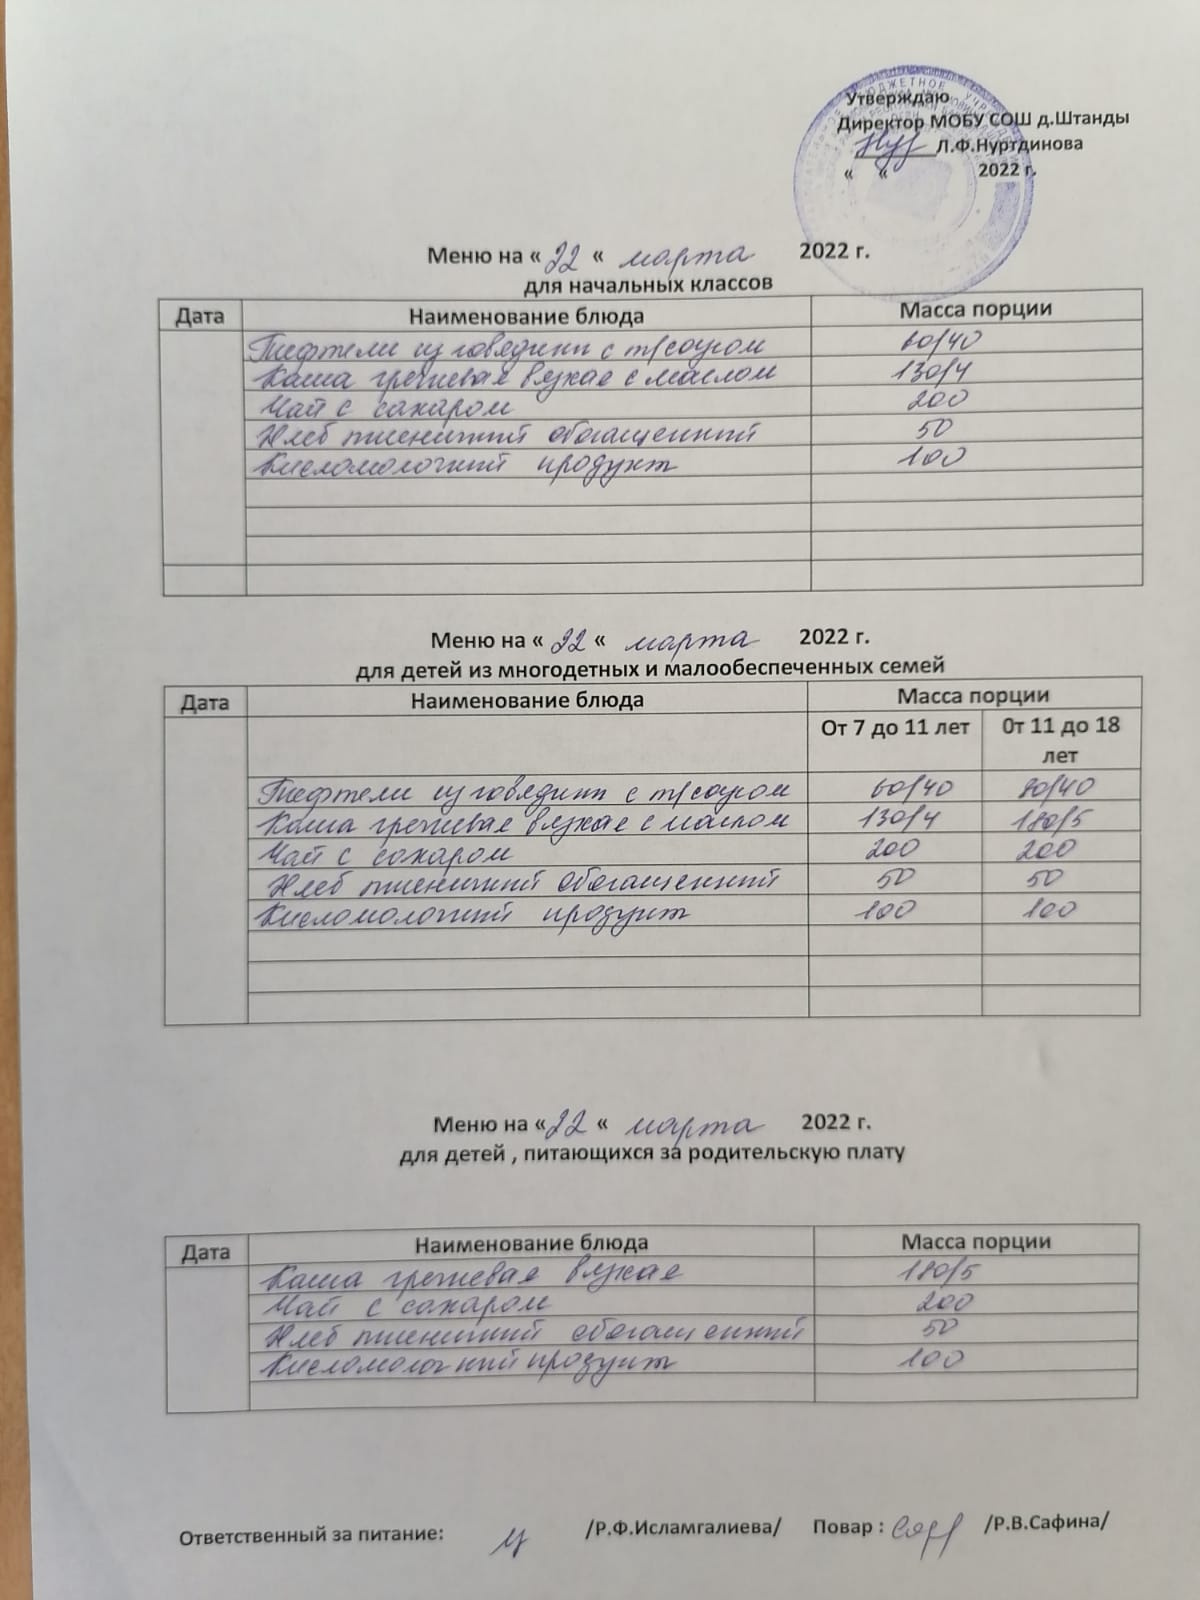 Утверждаю
Директор МОБУ СОШ д.Штанды
Л.Ф.Нуртдинова
« « 2022 г.
Меню на « 22 « марта 2022 г.
для начальных классов
Дата Наименование блюда Масса порции
Тефтели из говядины с т/соусом 60/40
Каша гречневая вязкая с маслом 130/4
Чай с сахаром 200
Хлеб пшеничный обогащенный 50
Кисломолочный продукт 100
Меню на « 22 « марта 2022 г.
для детей из многодетных и малообеспеченных семей
Дата Наименование блюда Масса порции
От 7 до 11 лет 0т 11 до 18
лет
Тефтели из говядины с т/соусом 60/40 80/40
Каша гречневая вязкая с маслом 130/4 180/5
Чай с сахаром 200 200
Хлеб пшеничный обогащенный 50 50
Кисломолочный продукт 100 100
Меню на « 22 « марта 2022 г.
для детей , питающихся за родительскую плату
Дата Наименование блюда Масса порции
Каша гречневая вязкая 180/5
Чай с сахаром 200
Хлеб пшеничный обогащенный 50
Кисломолочный продукт 100
Ответственный за питание: /Р.Ф.Исламгалиева/ Повар : /Р.В.Сафина/